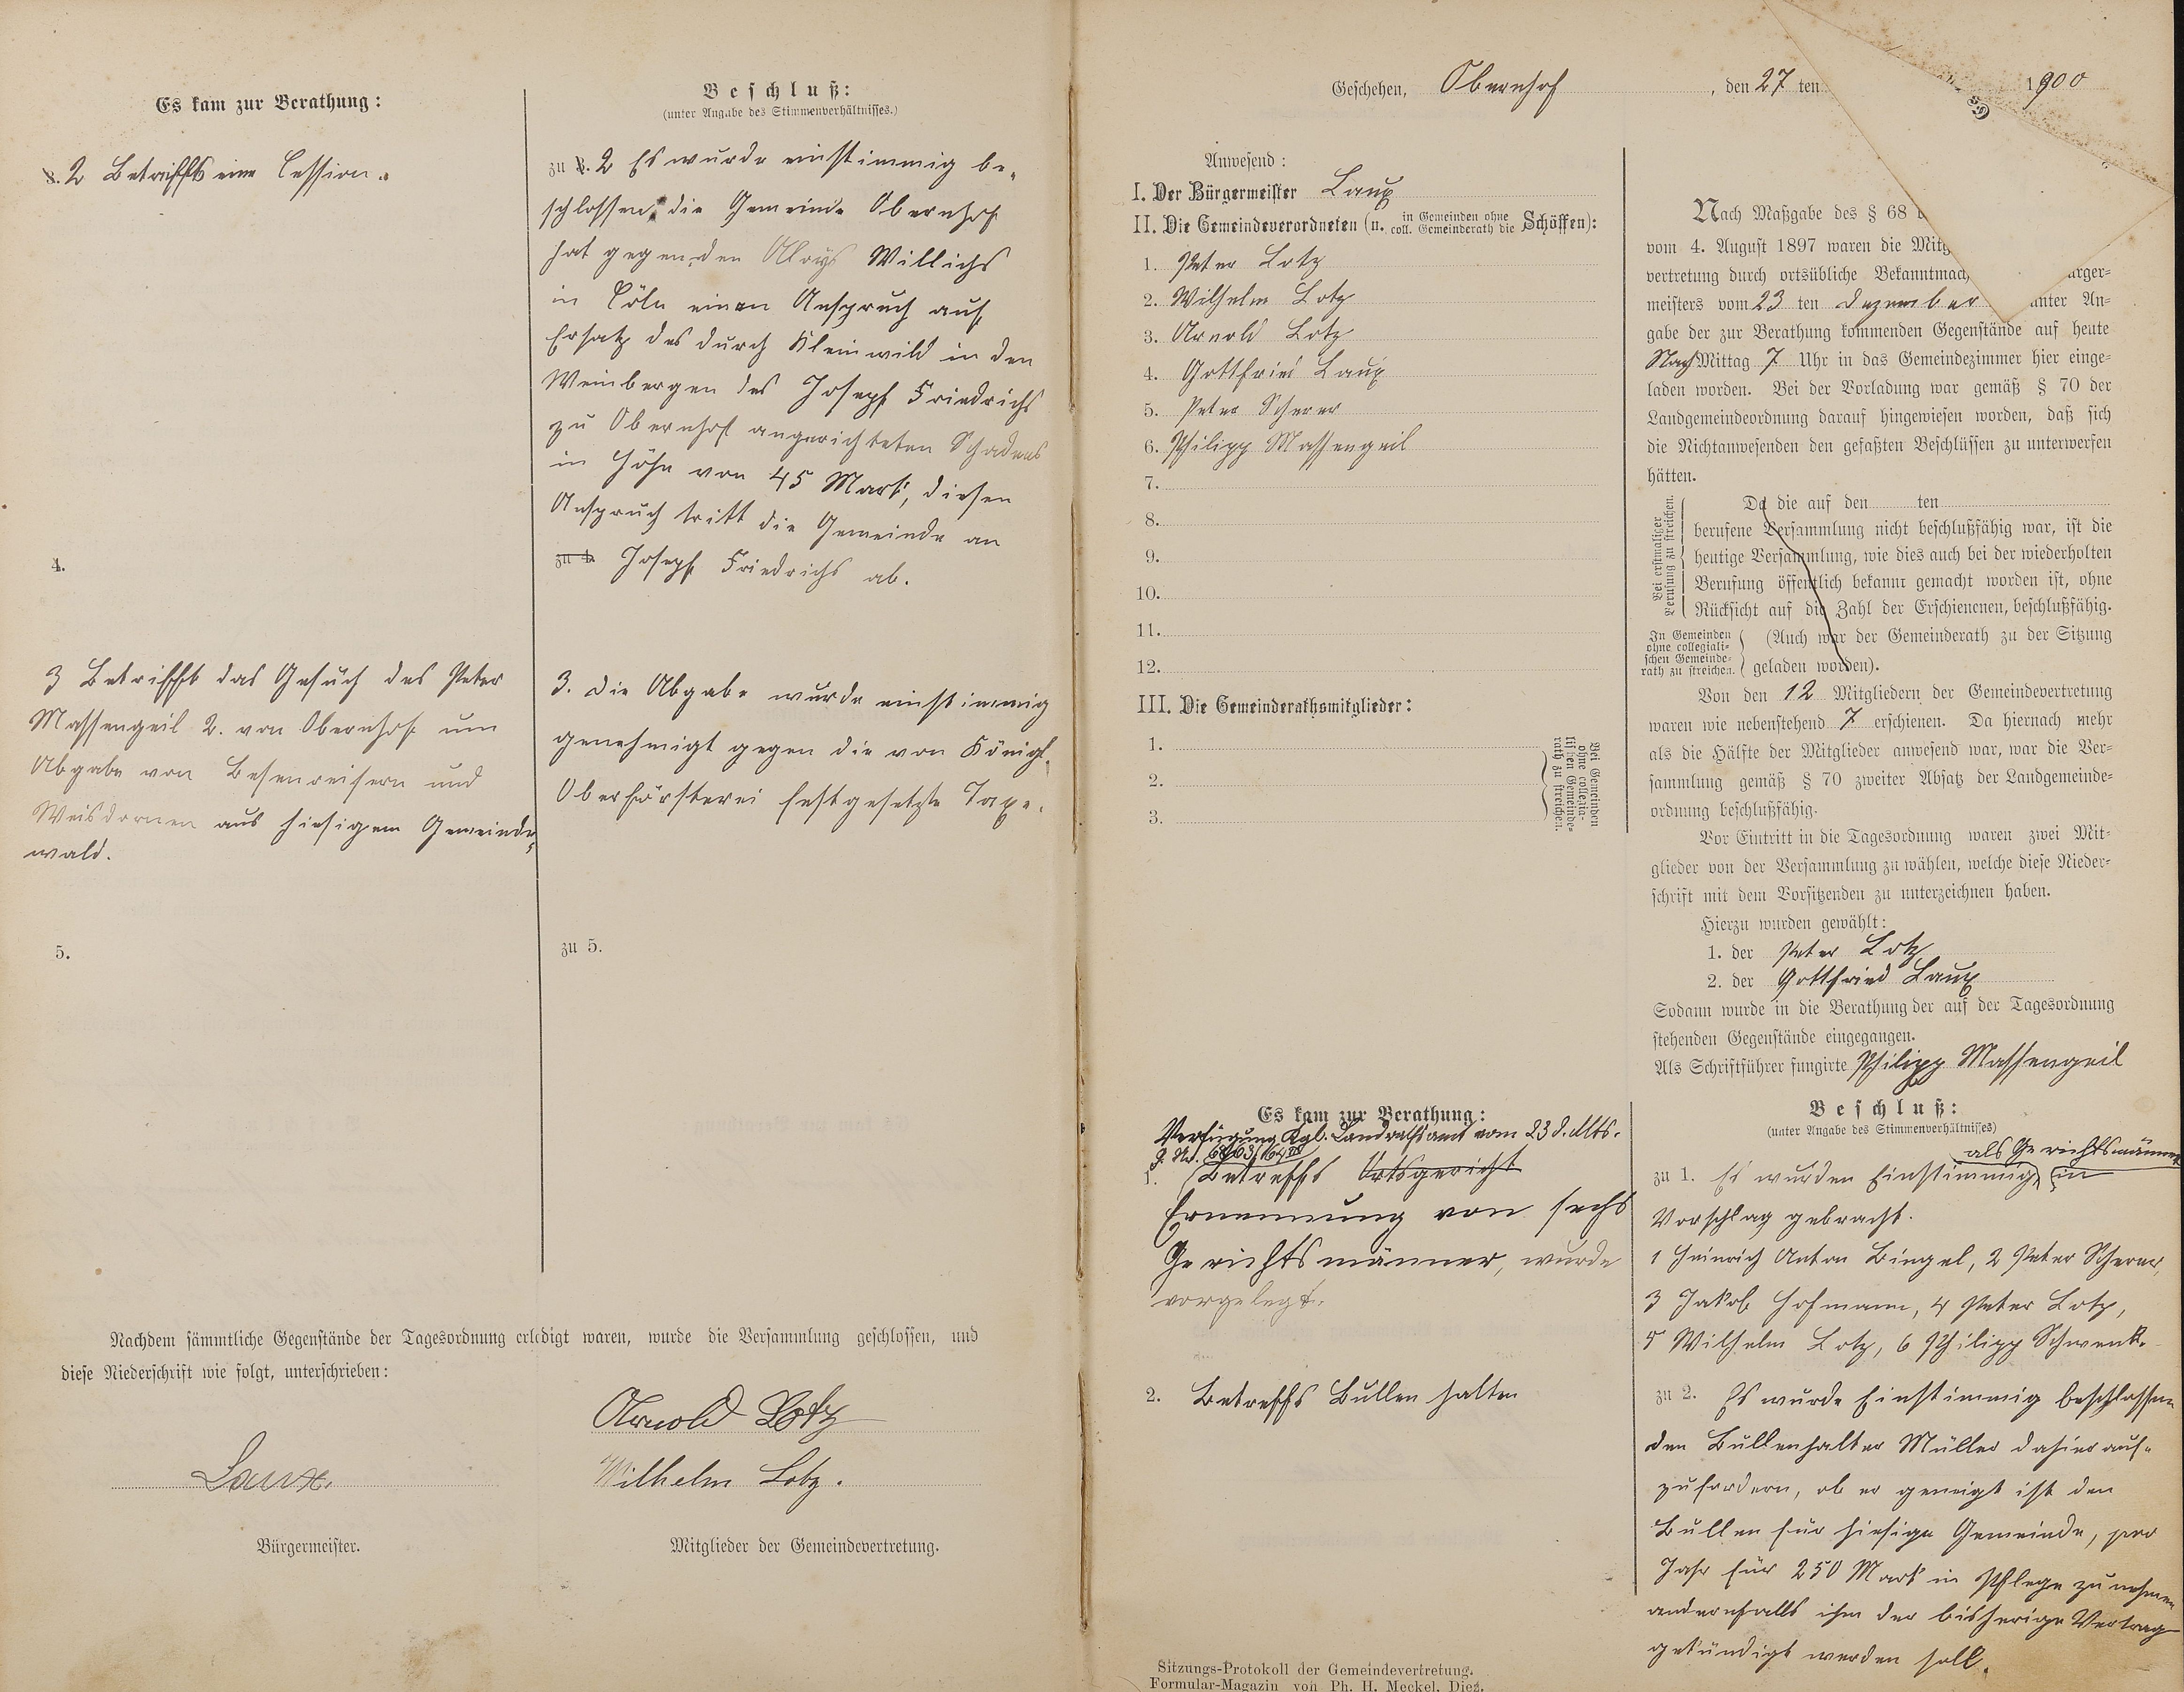 Es kam zur Berathung:
8. 2 Betriffts eine Cession.
4.
3 Betrifft das Gesuch des Peter
Massengeil 2. von Obernhof um
Abgabe von Besenreisern und
Weisdornen aus hiesigem Gemeinde-
wald.
5.
Beschluß:
(unter Angabe des Stimmenverhältnisses.)
zu 2 Es wurde einstimmig be-
schlossen, die Gemeinde Obernhof
hat gegen den Aloys Willichs
in Cöln einen Anspruch auf
Ersatz des durch Kleinwild in den
Weinbergen des Joseph Friedrichs
zu Obernhof angerichteten Schadens
in Höhe von 45 Mark, diesen
Anspruch tritt die Gemeinde an
zu 4. Joseph Friedrichs ab.
3. Die Abgabe wurde einstimmig
genehmigt gegen die von Königl.
Oberförsterei festgesetzte Taxe.
zu 5.
Nachdem sämmtliche Gegenstände der Tagesordnung erledigt waren, wurde die Versammlung geschlossen, und
diese Niederschrift wie folgt, unterschrieben:
Laux.
Bürgermeister.
Arnold Lotz
Wilhelm Lotz.
Mitglieder der Gemeindevertretung.
Geschehen, Obernhof, den 27 ten 1900
89
Anwesend:
I. Der Bürgermeister Laux
II. Die Gemeindeverordneten (u. in Gemeinden ohne coll. Gemeinderath die Schöffen):
1. Peter Lotz
2. Wilhelm Lotz
3. Arnold Lotz
4. Gottfried Laux
5. Peter Scherer
6. Philipp Massengeil
7.
8.
9.
10.
11.
12.
III. Die Gemeinderathsmitglieder:
1.
2.
3.
Bei Gemeinden
ohne collegia-
lischen Gemeinde-
rath zu streichen.
Nach Maßgabe des § 68
vom 4. August 1897 waren die Mitg
vertretung durch ortsübliche Bekanntmach ürger-
meisters vom 23 ten Dezember unter An-
gabe der zur Berathung kommenden Gegenstände auf heute
Nach Mittag 7 Uhr in das Gemeindezimmer hier einge-
laden worden. Bei der Vorladung war gemäß § 70 der
Landgemeindeordnung darauf hingewiesen worden, daß sich
die Nichtanwesenden den gefaßten Beschlüssen zu unterwerfen
hätten.
Bei erstmaliger
Berufung zu streichen.
Da die auf den ten
berufene Versammlung nicht beschlußfähig war, ist die
heutige Versammlung, wie dies auch bei der wiederholten
Berufung öffentlich bekannt gemacht worden ist, ohne
Rücksicht auf die Zahl der Erschienenen, beschlußfähig.
In Gemeinden
ohne collegiali-
schen Gemeinde-
rath zu streichen.
(Auch war der Gemeinderath zu der Sitzung
geladen worden).
Von den 12 Mitgliedern der Gemeindevertretung
waren wie nebenstehend 7 erschienen. Da hiernach mehr
als die Hälfte der Mitglieder anwesend war, war die Ver-
sammlung gemäß § 70 zweiter Absatz der Landgemeinde-
ordnung beschlußfähig.
Vor Eintritt in die Tagesordnung waren zwei Mit-
glieder von der Versammlung zu wählen, welche diese Nieder-
schrift mit dem Vorsitzenden zu unterzeichnen haben.
Hierzu wurden gewählt:
1. der Peter Lotz
2. der Gottfried Laux
Sodann wurde in die Berathung der auf der Tagesordnung
stehenden Gegenstände eingegangen.
Als Schriftführer fungirte Philipp Massengeil
Es kam zur Berathung:
Verfügung Kgl. Landrathsamt vom 23 d. Mts.
J. Nr.
1. Betreffs Ortsgericht
Ernennung von sechs
Gerichtsmänner, wurde
vorgelegt.
2. Betreffs Bullen halten
Beschluß:
(unter Angabe des Stimmenverhältnisses)
als Gerichtsmänner
zu 1. Es wurden Einstimmig, in
Vorschlag gebracht.
1 Heinrich Anton Bingel, 2 Peter Scherer,
3 Jakob Hofmann, 4 Peter Lotz,
5 Wilhelm Lotz, 6 Philipp Schwenk.
zu 2. Es wurde Einstimmig beschlossen
den Bullenhalter Müller dahier auf-
zufordern, ob er geneigt ist den
Bullen für hiesige Gemeinde, pro
Jahr für 250 Mark in Pflege zu nehmen
andernfalls ihm der bisherige Vertrag
gekündigt werden soll.
Sitzungs-Protokoll der Gemeindevertretung.
Formular-Magazin von Ph. H. Meckel, Diez.